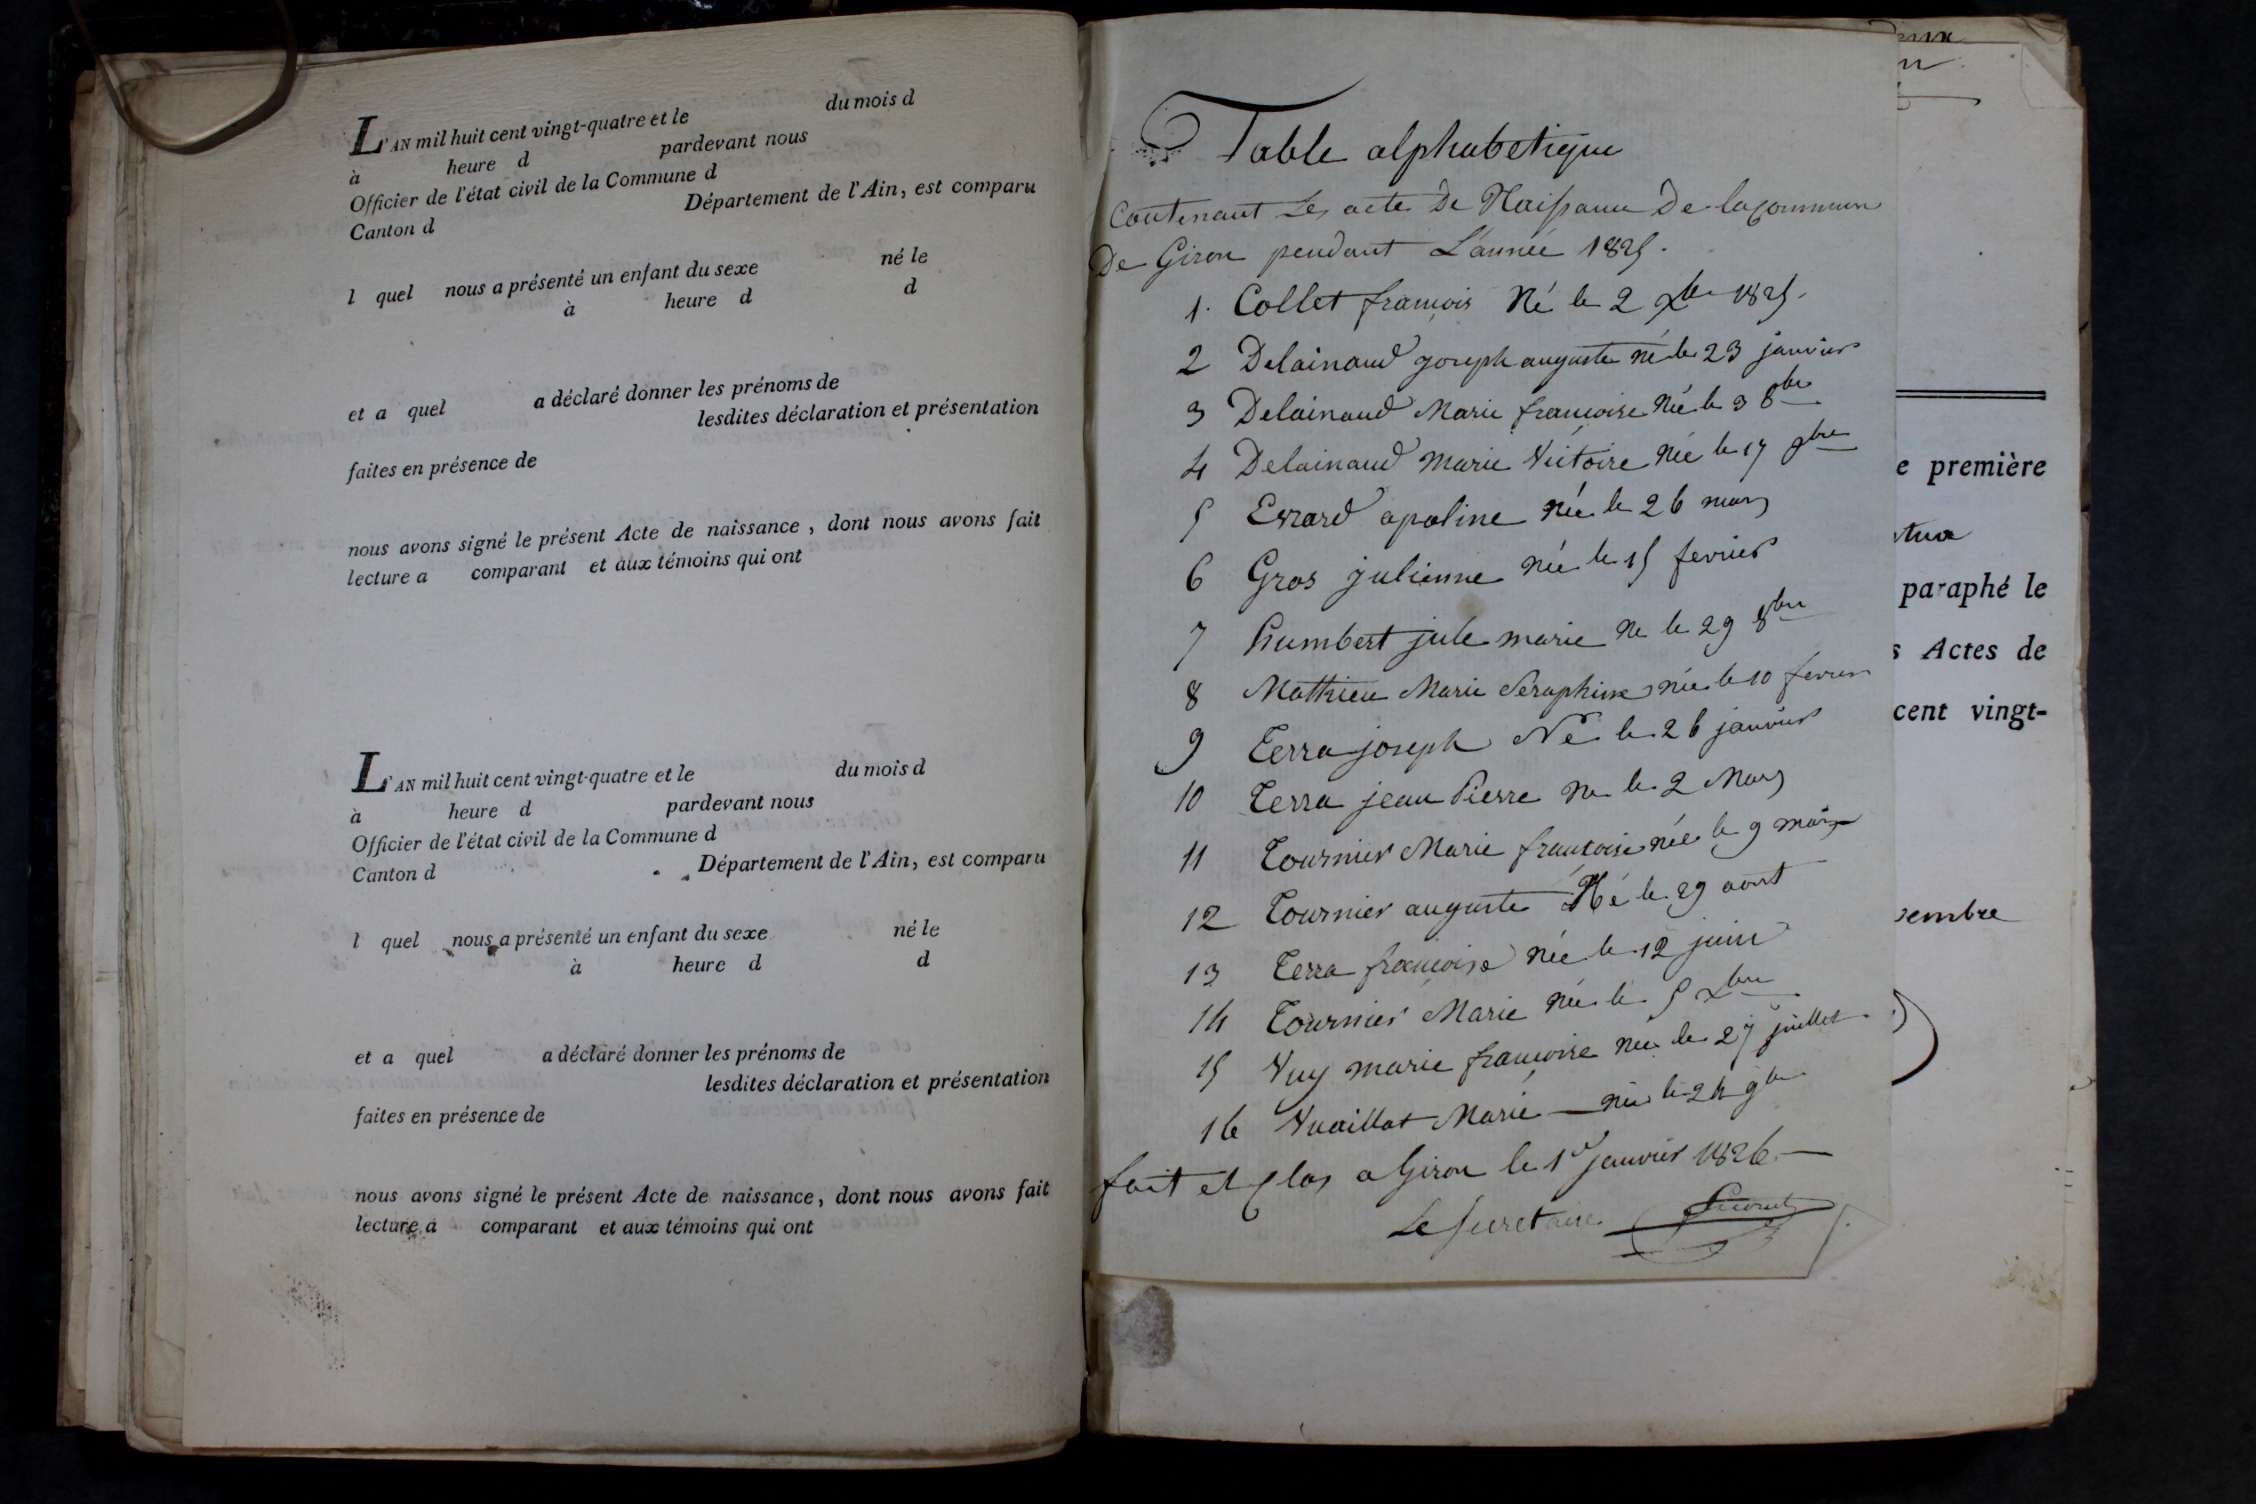 L'AN mil huit cent vingt-quatre et le du mois d
à heure d pardevant nous
Officier de l'état civil de la Commune d
Canton d Département de l'Ain, est comparu
l quel nous a présenté un enfant du sexe né le
à heure d d
et a quel a déclaré donner les prénoms de
lesdites déclaration et présentation
faites en présence de
nous avons signé le présent Acte de naissance, dont nous avons fait
lecture a comparant et aux témoins qui ont
L'AN mil huit cent vingt-quatre et le du mois d
à heure d pardevant nous
Officier de l'état civil de la Commune d
Canton d Département de l'Ain, est comparu
l quel nous a présenté un enfant du sexe né le
à heure d d
et a quel a déclaré donner les prénoms de
lesdites déclaration et présentation
faites en présence de
nous avons signé le présent Acte de naissance, dont nous avons fait
lecture a comparant et aux témoins qui ont
Table alphabetique
Contenant Les acte De Naissance De la commune
De Giron pendant L'année 1825.
1. Collet francois Né le 2 Xbre 1825.
2 Delainaud joseph auguste né le 23 janvier
3 Delainaud Marie francoise Née le 3 8bre
4 Delainaud Marie Victoire Née le 17 9bre
5 Evrard apoline Née le 26 mars
6 Gros julienne née le 15 fevrier
7 humbert jule marie ne le 29 8bre
8 Mathieu Marie Seraphine née le 10 fevrier
9 Terra joseph Né le 26 janvier
10 Terra jean Pierre ne le 2 Mars
11 Tournier Marie francoise née le 9 mars
12 Tournier auguste Né le 29 aout
13 Terra francoise née le 12 juin
14 Tournier Marie née le 5 Xbre
15 Vuy marie francoise née le 27 juillet
16 Vuaillat Marie née le 24 9bre
fait et Clos a Giron le 1er janvier 1826
Le Secretaire
e première
paraphé le
s Actes de
cent vingt-
embre